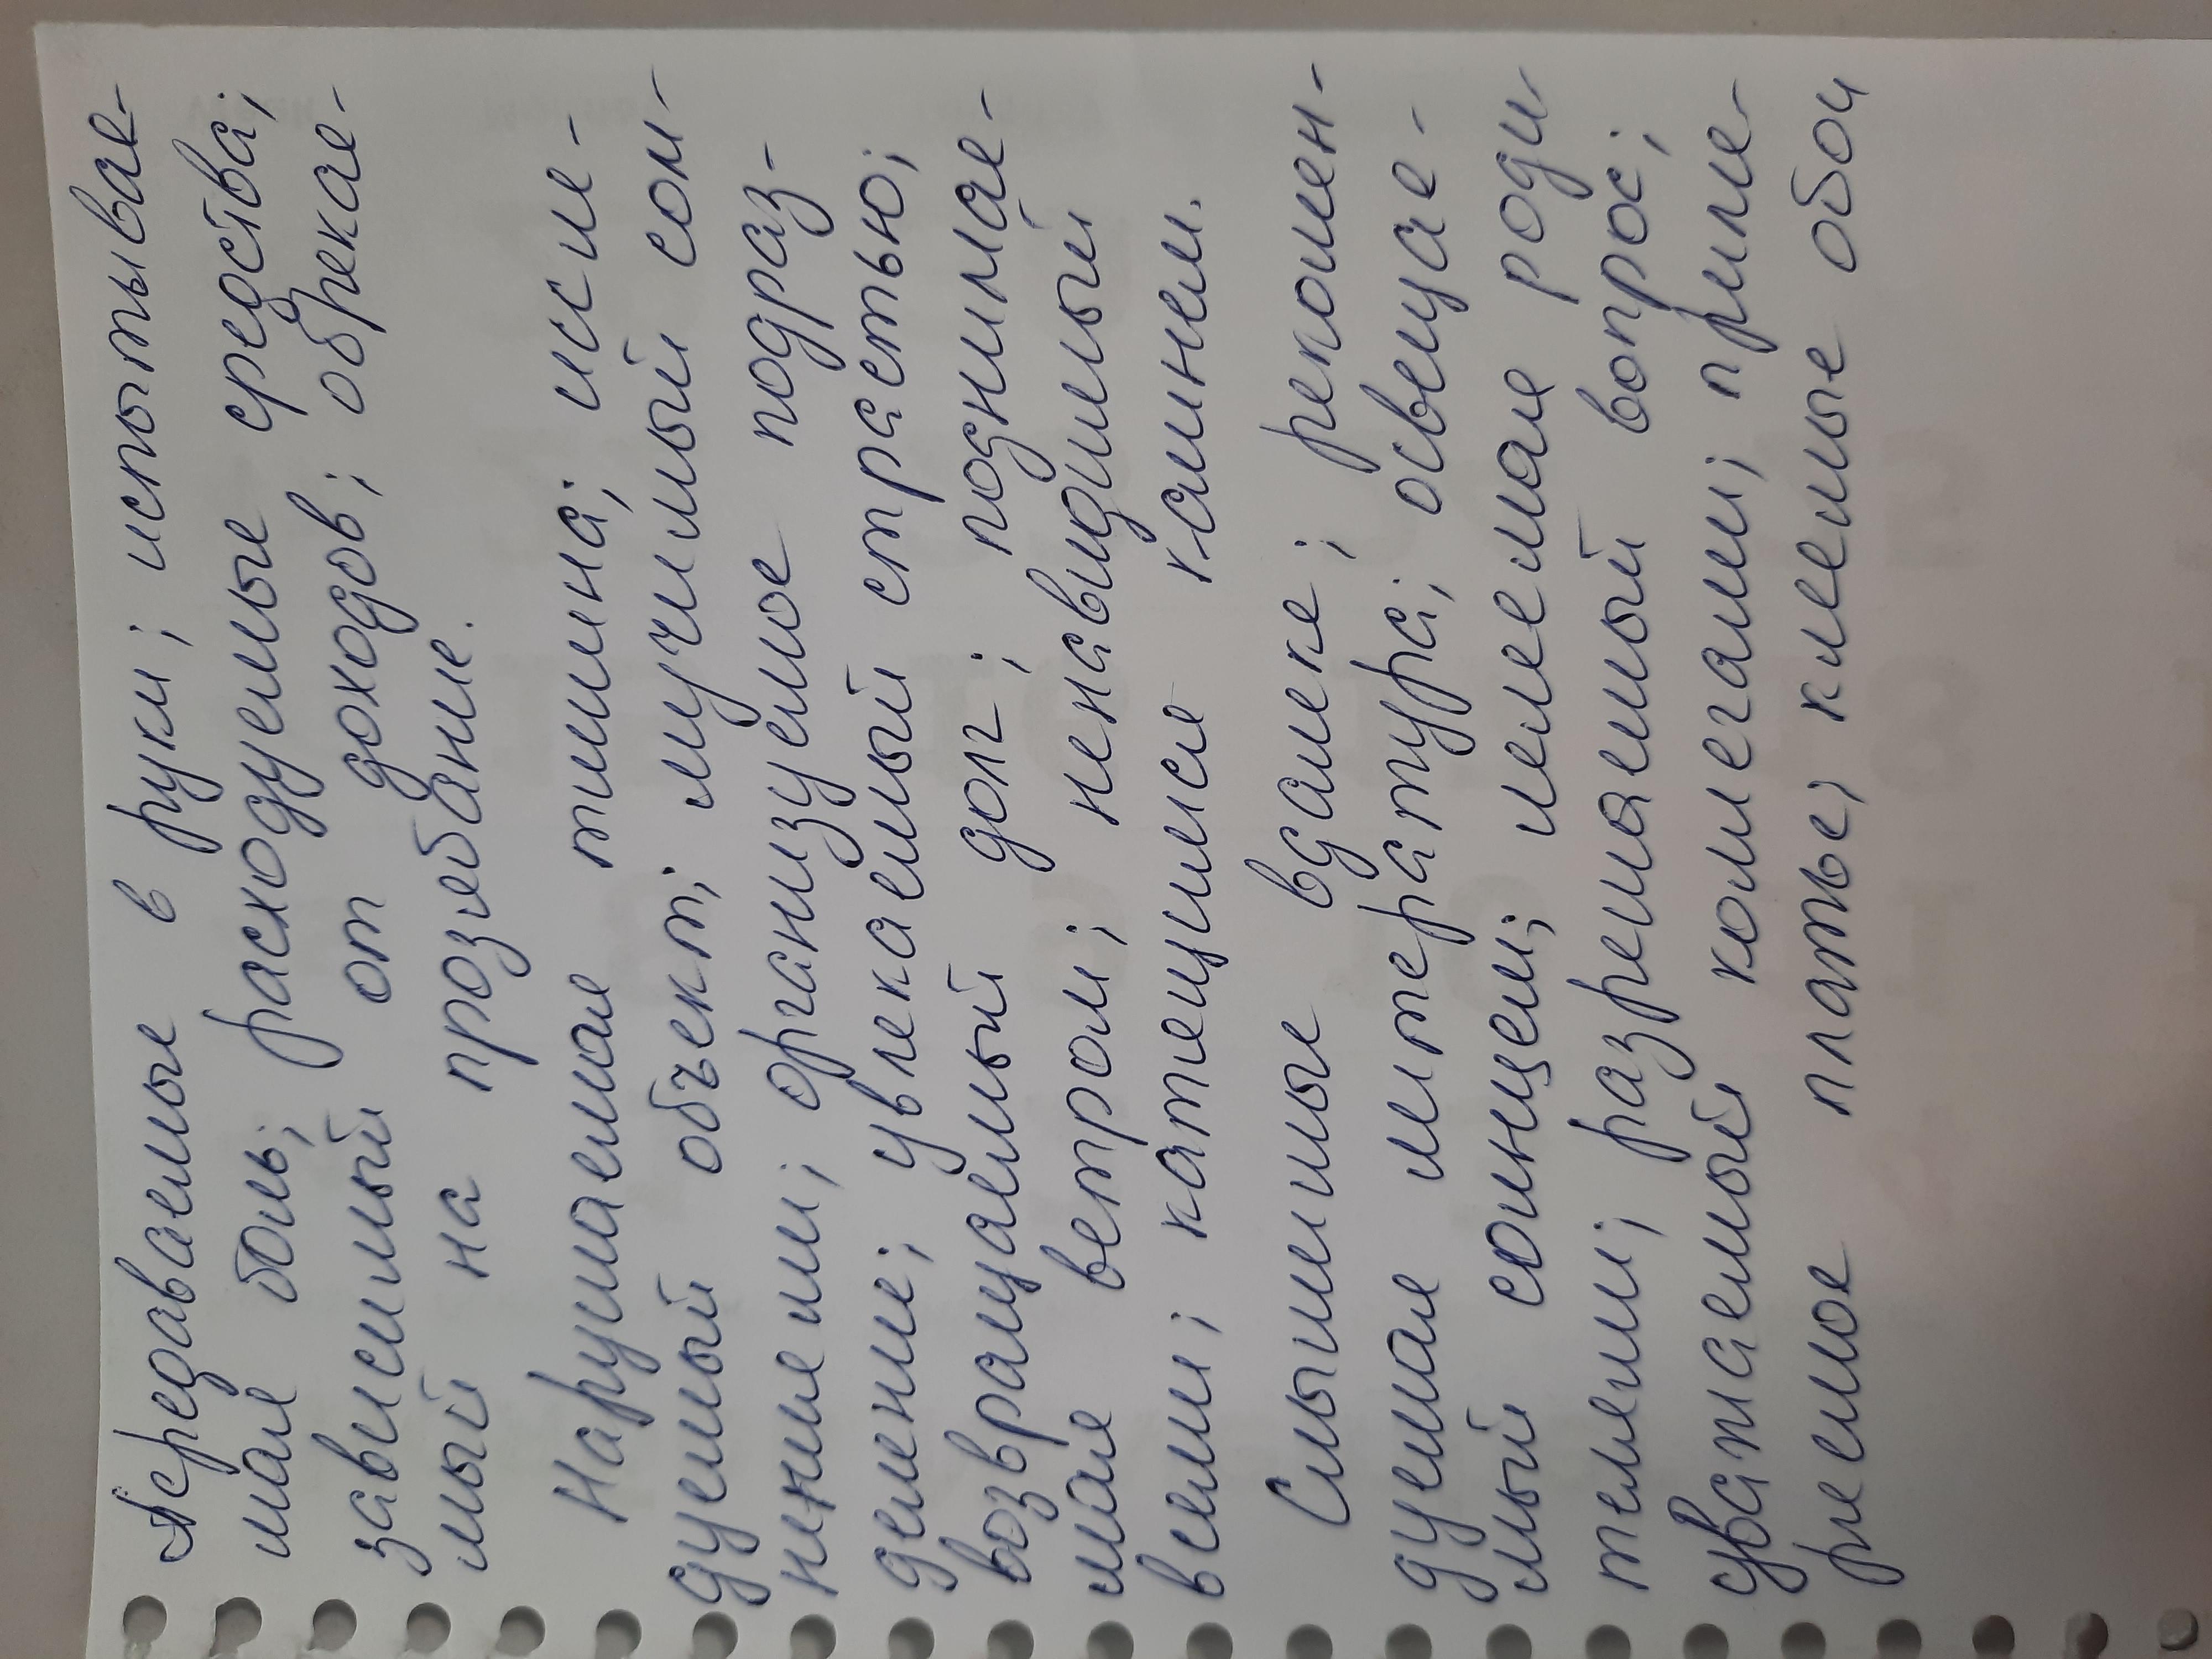 Передаваемые в руки; испытывае-
мая боль; расходуемые средства;
зависимый от доходов; обрекае-
мый на прозябание.
Нарушаемая тишина; иссле-
дуемый объект; мучимый сом-
нениями; организуемое подраз-
деление; увлекаемый страстью;
возвращаемый долг; поднимае-
мая ветром; ненавидимый
всеми; катящимся камнем.
Слышимые вдалеке; рекомен-
дуемая литература; освещае-
мый солнцем; лелеемая роди
телями; разрешаемый вопрос;
уважаемый коллегами; приме-
ряемое платье; клеимые обои